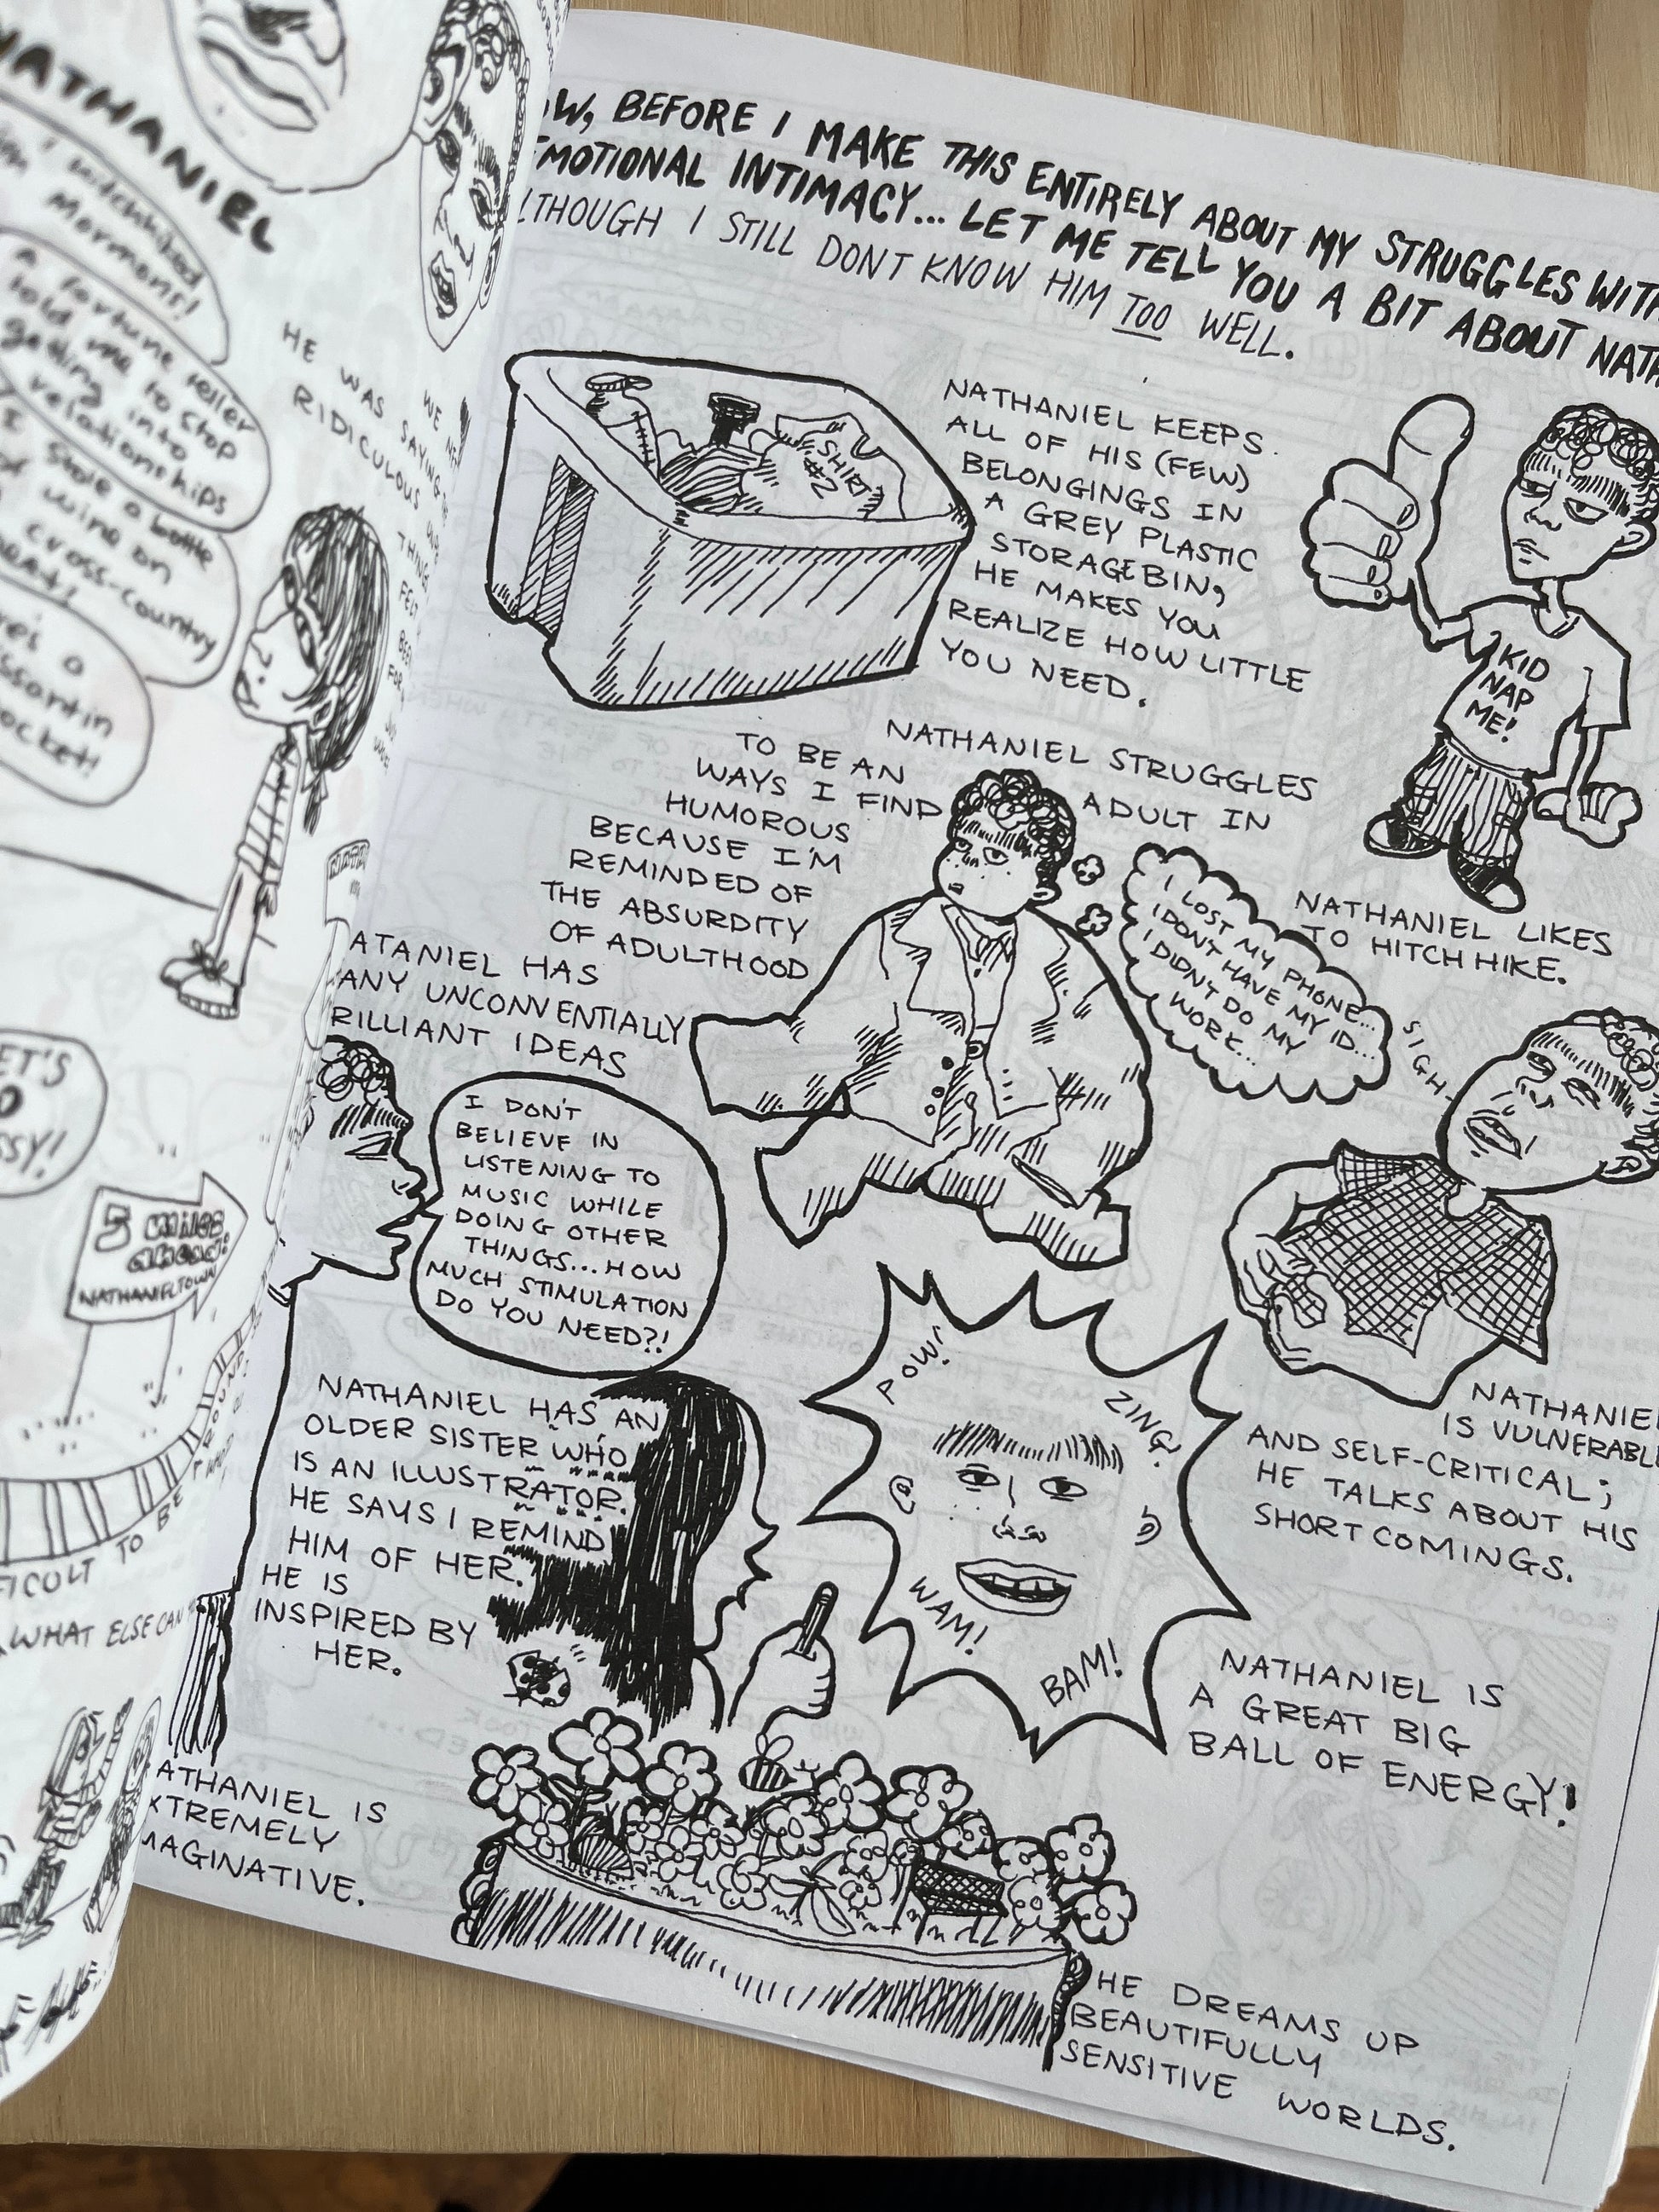 NATHANIEL
Mormons!
A fortune teller
told me to stop
getting into
relationships
stole a bottle
of wine on
cross-country
HE WAS SAYING
RIDICULOUS
THINGS
LET'S
5 MILES
AHEAD!
NATHANIELTOWN
TO BE
WHAT ELSE CAN
BEFORE I MAKE THIS ENTIRELY ABOUT MY STRUGGLES WITH
EMOTIONAL INTIMACY... LET ME TELL YOU A BIT ABOUT
ALTHOUGH I STILL DON'T KNOW HIM TOO WELL.
SHIRT
#2
NATHANIEL KEEPS
ALL OF HIS (FEW)
BELONGINGS IN
A GREY PLASTIC
STORAGEBIN,
HE MAKES YOU
REALIZE HOW LITTLE
YOU NEED.
KID
NAP
ME!
NATHANIEL LIKES
TO HITCHHIKE.
NATHANIEL STRUGGLES
TO BE AN
ADULT IN
WAYS I FIND
HUMOROUS
BECAUSE I'M
REMINDED OF
THE ABSURDITY
OF ADULTHOOD
I LOST MY PHONE...
I DON'T HAVE MY ID...
I DIDN'T DO MY
WORK...
SIGH
ATANIEL HAS
ANY UNCONVENTIALLY
RILLIANT IDEAS
I DON'T
BELIEVE IN
LISTENING TO
MUSIC WHILE
DOING OTHER
THINGS... HOW
MUCH STIMULATION
DO YOU NEED?!
NATHANIEL
IS VULNERABLE
AND SELF-CRITICAL;
HE TALKS ABOUT HIS
SHORT COMINGS.
NATHANIEL HAS AN
OLDER SISTER WHO
IS AN ILLUSTRATOR.
HE SAYS I REMIND
HIM OF HER.
HE IS
INSPIRED BY
HER.
POW!
ZING!
WAM!
BAM!
NATHANIEL IS
A GREAT BIG
BALL OF ENERGY!
ATHANIEL IS
XTREMELY
MAGINATIVE.
HE DREAMS UP
BEAUTIFULLY
SENSITIVE WORLDS.